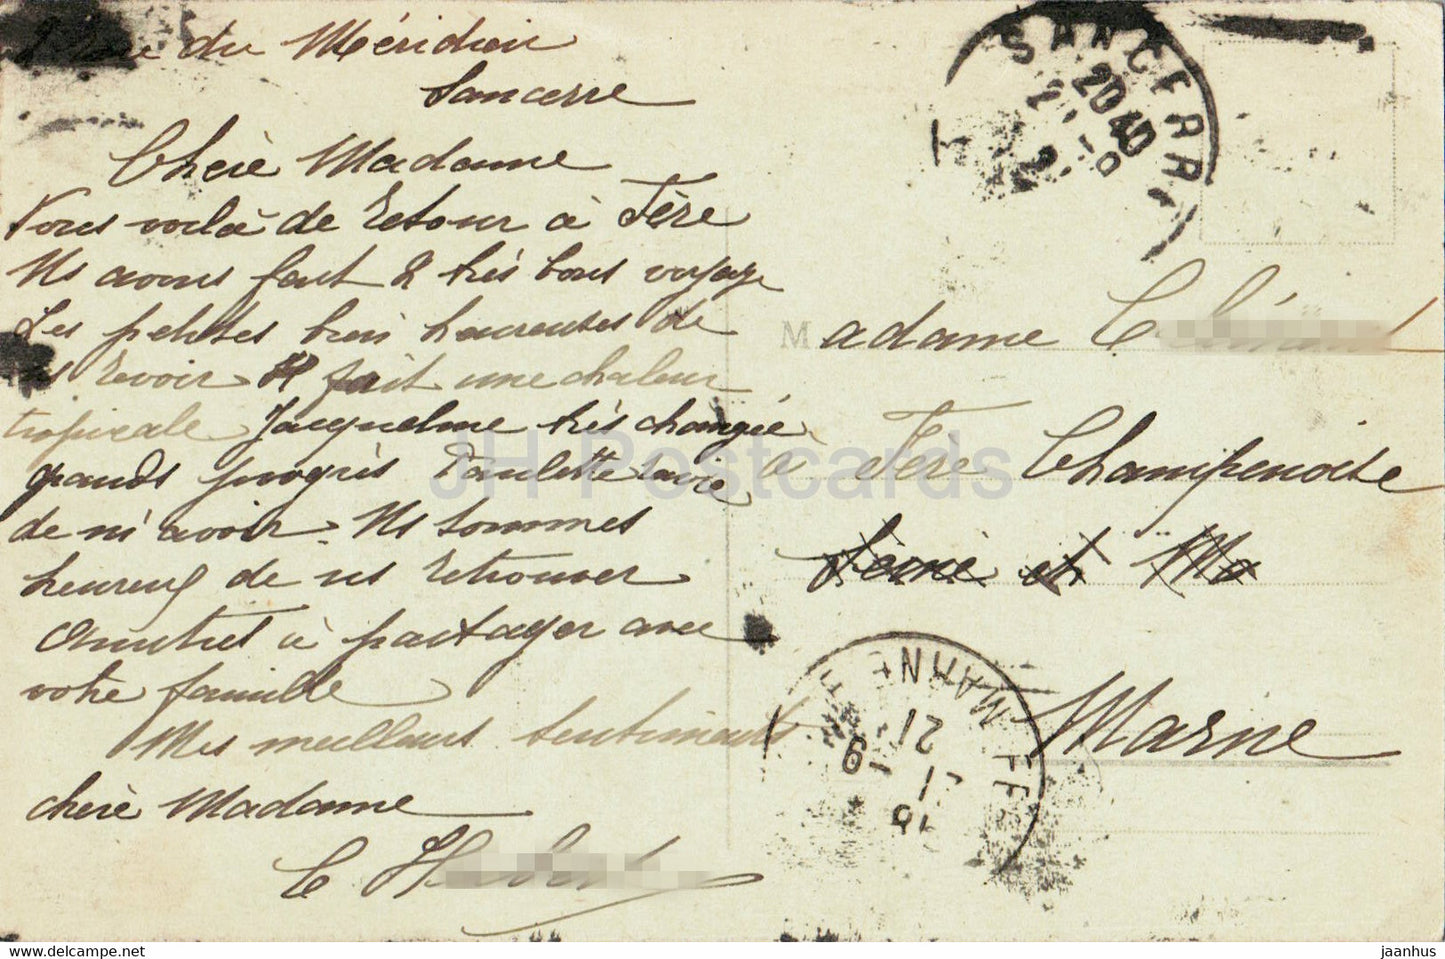 Rue du Méridien
Sancerre
Chère Madame
Nous voilà de retour à Fère
Ns avons fait 2 très bons voyage
Les petites bien heureuses de
revoir Il fait une chaleur
tropicale Jacqueline très changée
grands progrès Paulette ravie
de m'avoir. Ns sommes
heureux de ns retrouver
à partager avec
votre famille
Mes meilleurs sentiments
chère Madame
C H
SANCERRE
20 40
2
Madame C
à Fère Champenoise
Seine et Ma
Marne
MARNE
FERE
21
JH Postcards
www.delcampe.net
jaanhus